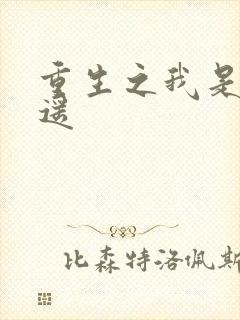 重生之我是
遥
比森特洛佩斯